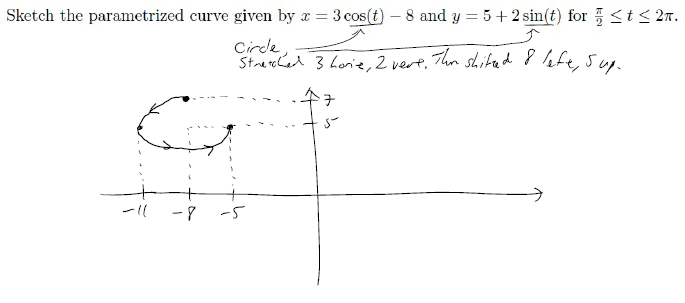 Sketch the parametrized curve given by x = 3 cos(t) − 8 and y = 5 + 2 sin(t) for π/2 ≤ t ≤ 2π.
Circle,
Stretched 3 horiz, 2 vert. Then shifted 8 left, 5 up.
7
5
-11 -8 -5